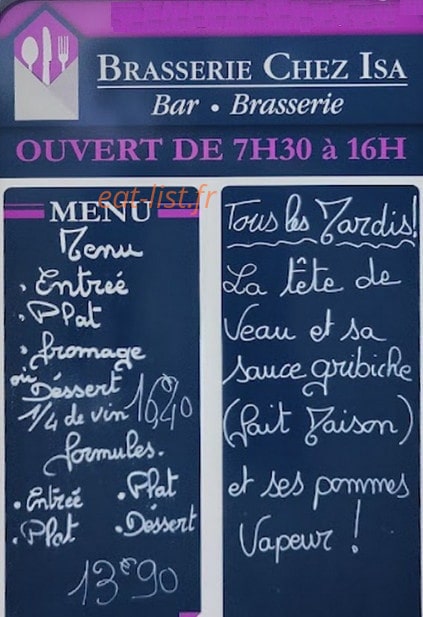 BRASSERIE CHEZ ISA
Bar • Brasserie
OUVERT DE 7H30 à 16H
eat-list.fr
MENU
Menu
• Entrée
• Plat
• fromage
où Déssert
1/4 de vin 16€40
formules.
• Entrée • Plat
• Plat • Déssert
13€90
Tous les Mardis!
La tête de
Veau et sa
sauce gribiche
(fait Maison)
et ses pommes
Vapeur !